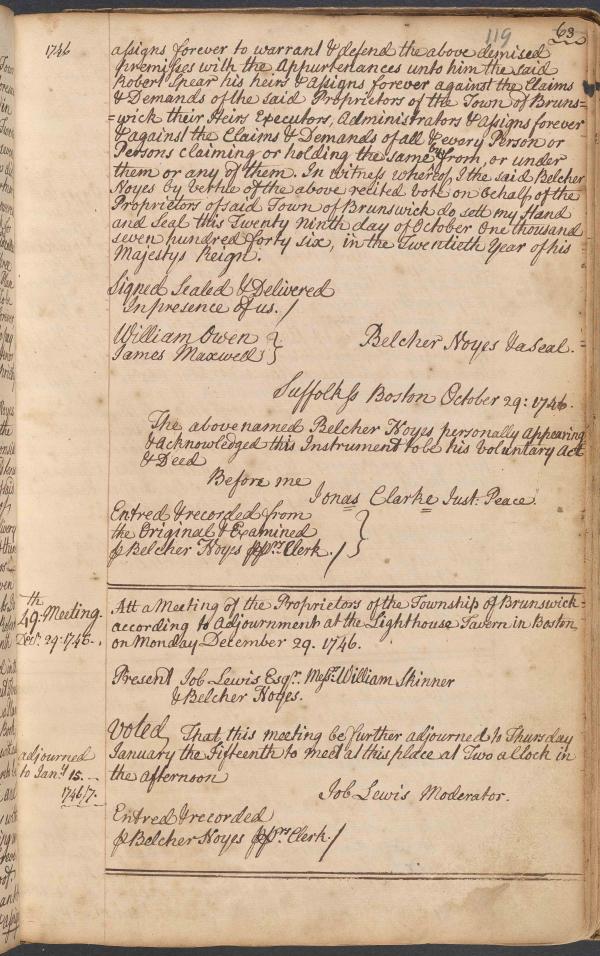 119 63
1746
assigns forever to warrant & defend the above demised
premisses with the Appurtenances unto him the said
Robert Spear his heirs & Assigns forever against the Claims
& Demands of the said Proprietors of the Town of Bruns=
=wick their Heirs Executors, Administrators & Assigns forever
& against the Claims & Demands of all & every Person or
Persons claiming or holding the same by from, or under
them or any of them. In witness whereof, I the said Belcher
Noyes by vertue of the above recited Vote on behalf of the
Proprietors of said Town of Brunswick do sett my Hand
and Seal this Twenty ninth day of October One thousand
seven hundred forty six, in the Twentieth Year of his
Majestys Reign.
Signed Sealed & Delivered
In presence of us. /
William Owen }
James Maxwell }
Belcher Noyes & a Seal.
Suffolk ss Boston October 29: 1746.
The above named Belcher Noyes personally Appearing
& acknowledged this Instrument to be his voluntary Act
& Deed
Before me
Jonas Clarke Just: Peace.
Entred & recorded from
the Original & Examined
⅌ Belcher Noyes Clerk. /
49th Meeting.
Decr. 29. 1746.
Att a Meeting of the Proprietors of the Township of Brunswick
according to Adjournment at the Lighthouse Tavern in Boston
on Monday December 29. 1746.
Present Job Lewis Esqr. Messrs William Skinner
& Belcher Noyes.
Voted That this meeting be further adjourned to Thursday
January the Fifteenth to meet at this place at Two a Clock in
the afternoon
adjourned
to Jany 15.
1746/7.
Job Lewis Moderator.
Entred & recorded
⅌ Belcher Noyes Clerk. /